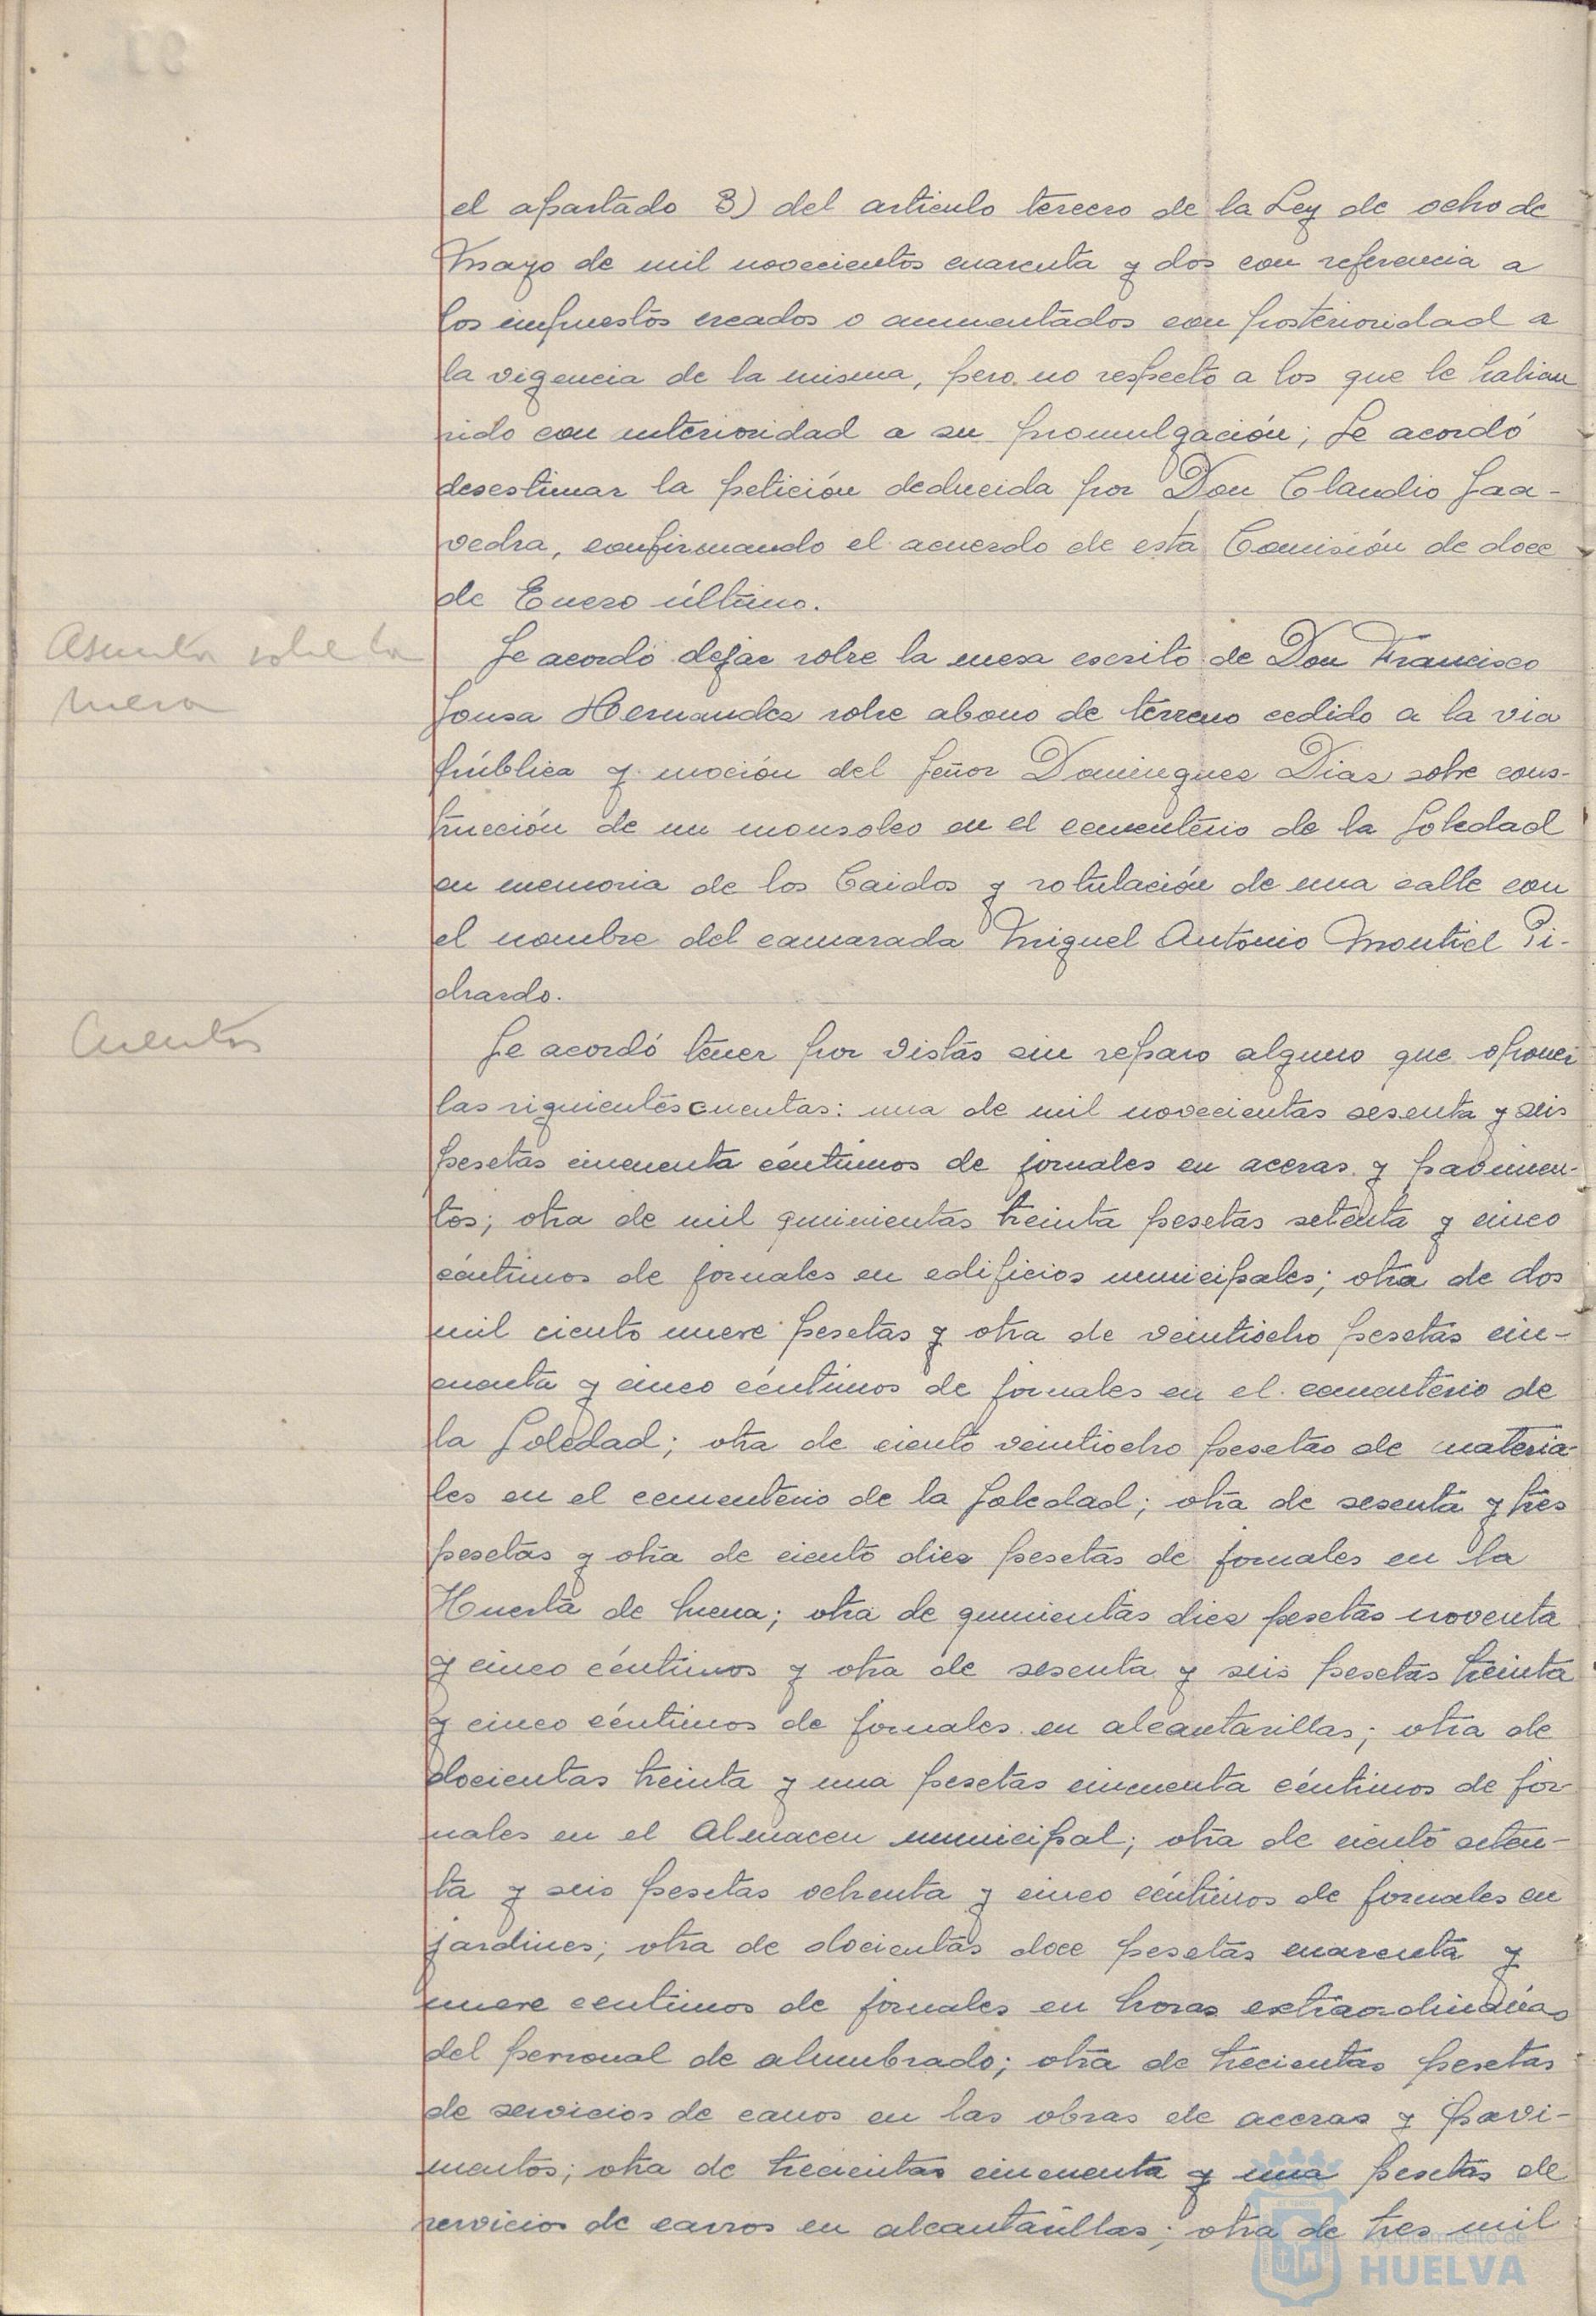 el apartado B) del articulo tercero de la Ley de ocho de
Mayo de mil novecientos cuarenta y dos con referencia a
los impuestos creados o aumentados con posterioridad a
la vigencia de la misma, pero no respecto a los que le habian
sido con anterioridad a su promulgación; Se acordó
desestimar la petición deducida por Don Claudio Saa-
vedra, confirmando el acuerdo de esta Comisión de doce
de Enero último.
Asunto sobre la
mesa
Se acordó dejar sobre la mesa escrito de Don Francisco
Sousa Hernandez sobre abono de terreno cedido a la via
pública y moción del Señor Dominguez Diaz sobre cons-
trucción de un mausoleo en el cementerio de la Soledad
en memoria de los Caidos y rotulación de una calle con
el nombre del camarada Miguel Antonio Montiel Pi-
chardo.
Cuentas
Se acordó tener por vistas sin reparo alguno que oponer
las siguientes cuentas: una de mil novecientas sesenta y seis
pesetas cincuenta céntimos de jornales en aceras y pavimen-
tos; otra de mil quinientas treinta pesetas setenta y cinco
céntimos de jornales en edificios municipales; otra de dos
mil ciento nueve pesetas y otra de veintiocho pesetas cin-
cuenta y cinco céntimos de jornales en el cementerio de
la Soledad; otra de ciento veintiocho pesetas de materia-
les en el cementerio de la Soledad; otra de sesenta y tres
pesetas y otra de ciento diez pesetas de jornales en la
Huerta de Mena; otra de quinientas diez pesetas noventa
y cinco céntimos y otra de sesenta y seis pesetas treinta
y cinco céntimos de jornales en alcantarillas; otra de
docientas treinta y una pesetas cincuenta céntimos de jor-
nales en el Almacen municipal; otra de ciento seten-
ta y seis pesetas ochenta y cinco céntimos de jornales en
jardines; otra de docientas doce pesetas cuarenta y
nueve centimos de jornales en horas extraordinarias
del personal de alumbrado; otra de trecientas pesetas
de servicios de carros en las obras de aceras y pavi-
mentos; otra de trecientas cincuenta y una pesetas de
servicios de carros en alcantarillas; otra de tres mil
Ayuntamiento de
HUELVA